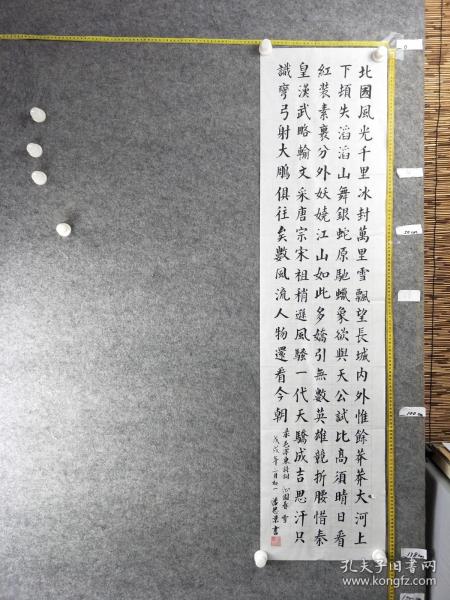 北國風光千里冰封萬里雪飄望長城內外惟餘莽莽大河上
下頓失滔滔山舞銀蛇原馳蠟象欲與天公試比高須晴日看
紅裝素裹分外妖嬈江山如此多嬌引無數英雄競折腰惜秦
皇漢武略輸文采唐宗宋祖稍遜風騷一代天驕成吉思汗只
識彎弓射大鵬俱往矣數風流人物還看今朝
毛澤東詩詞 沁園春 雪
戊戌年二月初一 書
0
50cm
100cm
138cm
孔夫子旧书网
www.kongfz.com